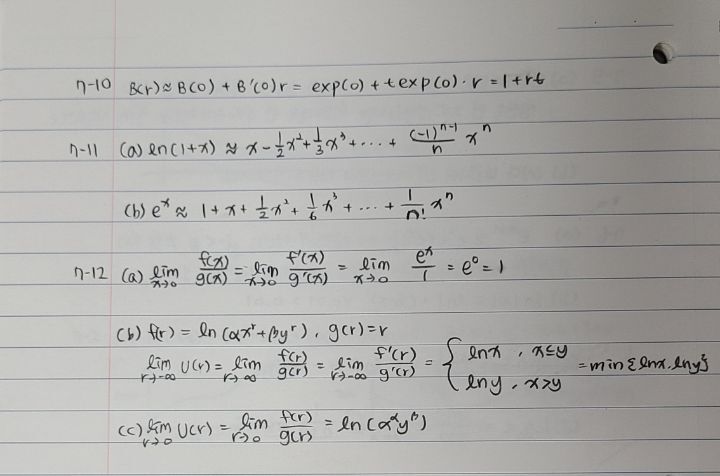 7-10 B(r) ≈ B(0) + B'(0)r = exp(0) + t exp(0)·r = 1+rt
7-11 (a) ln(1+x) ≈ x - 1/2 x² + 1/3 x³ + ... + (-1)^(n-1)/n x^n
(b) e^x ≈ 1 + x + 1/2 x² + 1/6 x³ + ... + 1/n! x^n
7-12 (a) lim x→0 f(x)/g(x) = lim x→0 f'(x)/g'(x) = lim x→0 e^x/1 = e^0 = 1
(b) f(r) = ln(αx^r + βy^r), g(r) = r
lim r→-∞ U(r) = lim r→-∞ f(r)/g(r) = lim r→-∞ f'(r)/g'(r) = { lnx, x≤y
lny, x>y = min{lnx, lny}
(c) lim r→0 U(r) = lim r→0 f(r)/g(r) = ln(x^α y^β)